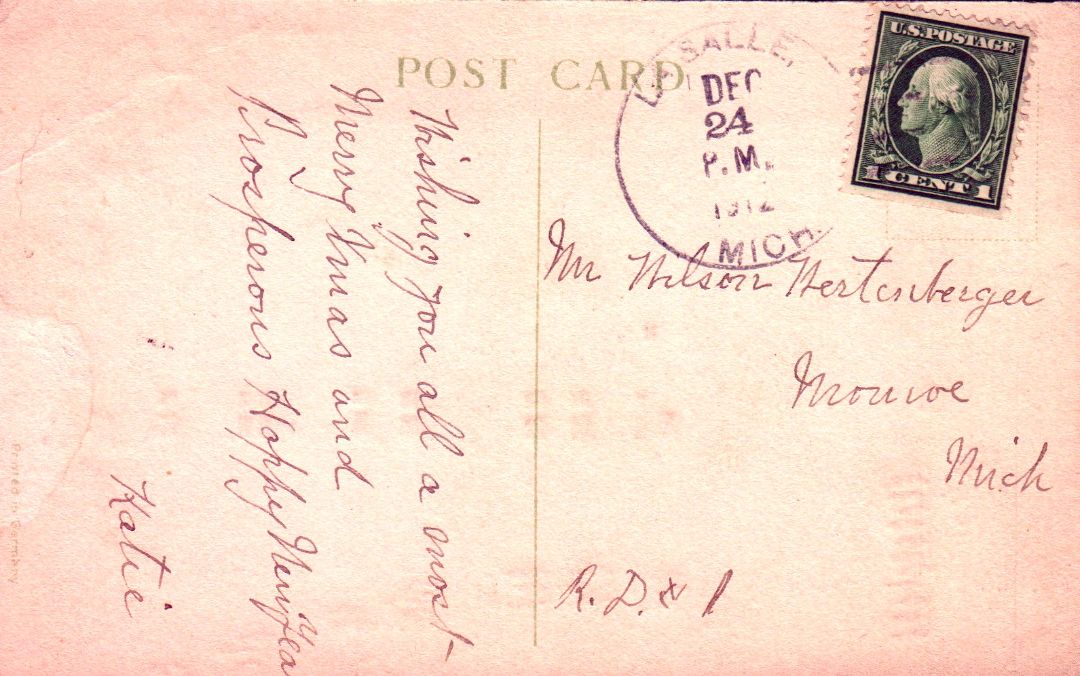 POST CARD
LA SALLE,
DEC
24
P.M.
1912
MICH.
U.S. POSTAGE
1 CENT 1
Wishing you all a most
Merry Xmas and
Prosperous Happy New Yea
Katie
Mr Wilson Hertenberger
Monroe
Mich
R.D. # 1
Printed in Germany